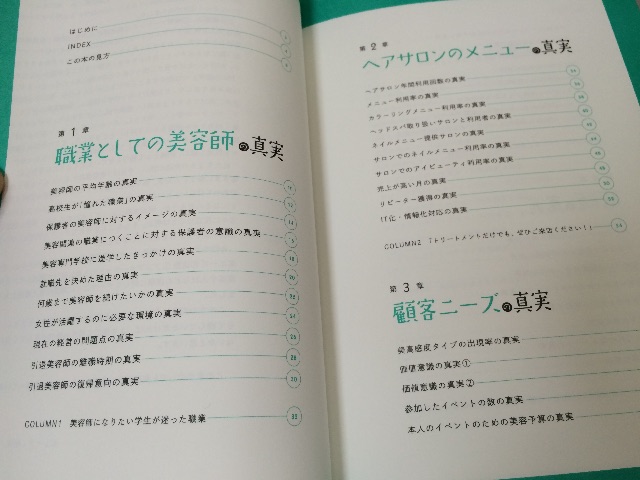 はじめに
INDEX
この本の見方
第1章
職業としての美容師の真実
美容師の平均年齢の真実
高校生が「憧れた職業」の真実
保護者の美容師に対するイメージの真実
美容関連の職業につくことに対する保護者の意識の真実
美容専門学校に進住したきっかけの真実
就職先を決めた理由の真実
何歳まで美容師を続けたいかの真実
女性が活躍するのに必要な環境の真実
現在の経営の問題点の真実
引退美容師の離職時期の真実
引退美容師の復帰意向の真実
COLUMN1 美容師になりたい学生が迷った職業
第2章
ヘアサロンのメニューの真実
ヘアサロン年間利用回数の真実
メニュー利用率の真実
カラーリングメニュー利用率の真実
ヘッドスパ取り扱いサロンと利用者の真実
ネイルメニュー提供サロンの真実
サロンでのネイルメニュー利用率の真実
サロンでのアイビューティ利用率の真実
売上が高い月の真実
リピーター獲得の真実
IT化・情報化対応の真実
COLUMN2 「トリートメントだけでも、ぜひご来店ください！」
第3章
顧客ニーズの真実
美高感度タイプの出現率の真実
価値意識の真実①
価値意識の真実②
参加したイベントの数の真実
本人のイベントのための美容予算の真実